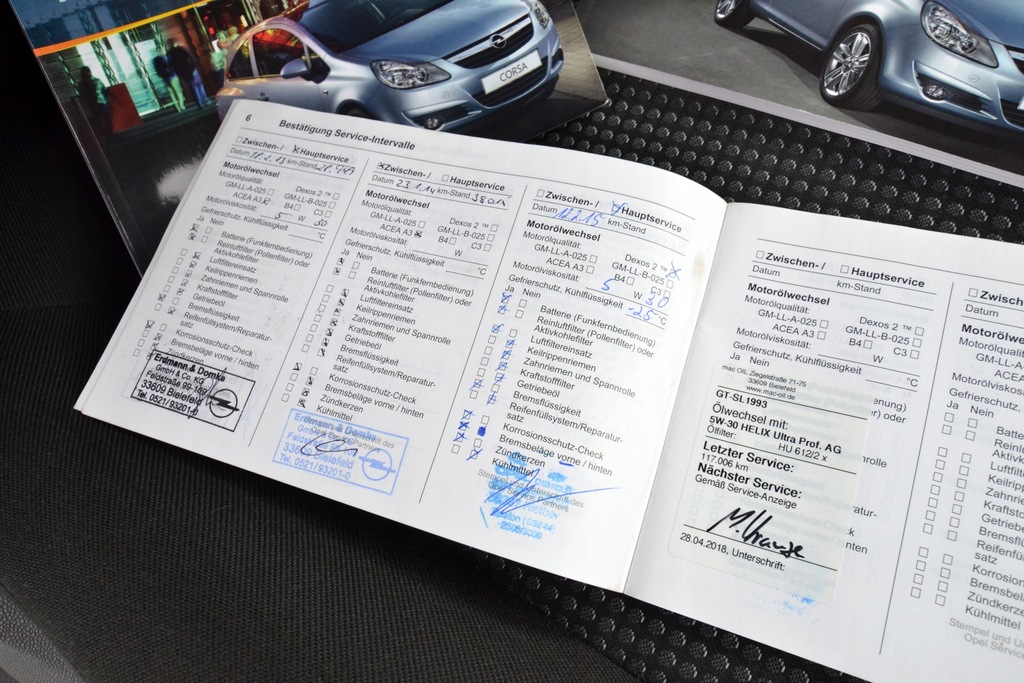 CORSA
6 Bestätigung Service-Intervalle
Zwischen-/ Hauptservice
Datum 18.2.13 km-Stand 28.949
Motorölwechsel
Motorölqualität: Dexos 2 ™
GM-LL-A-025 GM-LL-B-025
ACEA A3 B4 C3
Motorölviskosität: 5 W 30
Gefrierschutz, Kühlflüssigkeit °C
Ja Nein
Batterie (Funkfernbedienung)
Reinluftfilter (Pollenfilter) oder
Aktivkohlefilter
Luftfiltereinsatz
Keilrippenriemen
Zahnriemen und Spannrolle
Kraftstofffilter
Getriebeöl
Bremsflüssigkeit
Reifenfüllsystem/Reparatur-
satz
Korrosionsschutz-Check
Bremsbeläge vorne / hinten
Zündkerzen
Erdmann & Domke
GmbH & Co. KG
Feldstraße 99-
33609 Bielefeld
Tel. 0521/93201-0
Zwischen-/ Hauptservice
Datum 23.1.14 km-Stand 38015
Motorölwechsel
Motorölqualität: Dexos 2 ™
GM-LL-A-025 GM-LL-B-025
ACEA A3 B4 C3
Motorölviskosität: W
Gefrierschutz, Kühlflüssigkeit °C
Ja Nein
Batterie (Funkfernbedienung)
Reinluftfilter (Pollenfilter) oder
Aktivkohlefilter
Luftfiltereinsatz
Keilrippenriemen
Zahnriemen und Spannrolle
Kraftstofffilter
Getriebeöl
Bremsflüssigkeit
Reifenfüllsystem/Reparatur-
satz
Korrosionsschutz-Check
Bremsbeläge vorne / hinten
Zündkerzen
Kühlmittel
Erdmann & Domke
33609 Bielefeld
Tel. 0521/93201-0
Zwischen-/ Hauptservice
Datum 12.2.15 km-Stand
Motorölwechsel
Motorölqualität: Dexos 2 ™
GM-LL-A-025 GM-LL-B-025
ACEA A3 B4 C3
Motorölviskosität: 5 W 30
Gefrierschutz, Kühlflüssigkeit -25 °C
Ja Nein
Batterie (Funkfernbedienung)
Reinluftfilter (Pollenfilter) oder
Aktivkohlefilter
Luftfiltereinsatz
Keilrippenriemen
Zahnriemen und Spannrolle
Kraftstofffilter
Getriebeöl
Bremsflüssigkeit
Reifenfüllsystem/Reparatur-
satz
Korrosionsschutz-Check
Bremsbeläge vorne / hinten
Zündkerzen
Kühlmittel
Stempel und Unterschrift des
Opel Service Partners
(05244)
Zwischen-/ Hauptservice
Datum km-Stand
Motorölwechsel
Motorölqualität: Dexos 2 ™
GM-LL-A-025 GM-LL-B-025
ACEA A3 B4 C3
Motorölviskosität: W
Gefrierschutz, Kühlflüssigkeit °C
Ja Nein
mac OIL Ziegelstraße 71-75
33609 Bielefeld
www.mac-oil.de
GT-SL1993
Ölwechsel mit:
5W-30 HELIX Ultra Prof. AG
Ölfilter: HU 612/2 x
Letzter Service:
117.006 km
Nächster Service:
Gemäß Service-Anzeige
M. Krause
28.04.2018, Unterschrift:
enung)
oder
nrolle
ratur-
ck
hinten
Zwisch
Datum
Motoröl
Motorölqu
GM-LL-A
ACEA
Motorölvisko
Gefrierschut
Ja Nein
Batte
Reinl
Aktivk
Luftfilt
Keilrip
Zahnri
Kraftst
Getrieb
Bremsfl
Reifenfü
satz
Korrosion
Bremsbel
Zündkerze
Kühlmittel
Stempel und U
Opel Service